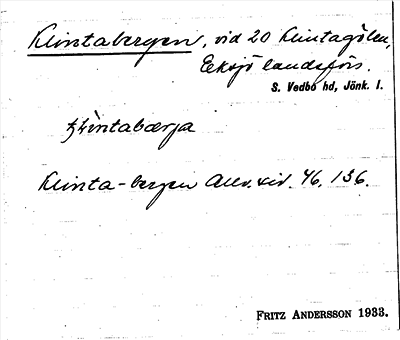 Klintabergen, vid 20 Klintagölen,
Eksjö landsförs.
S. Vedbo hd, Jönk. l.
klintabærja
Klinta-bergen Allm. vid. 46, 136.
FRITZ ANDERSSON 1933.